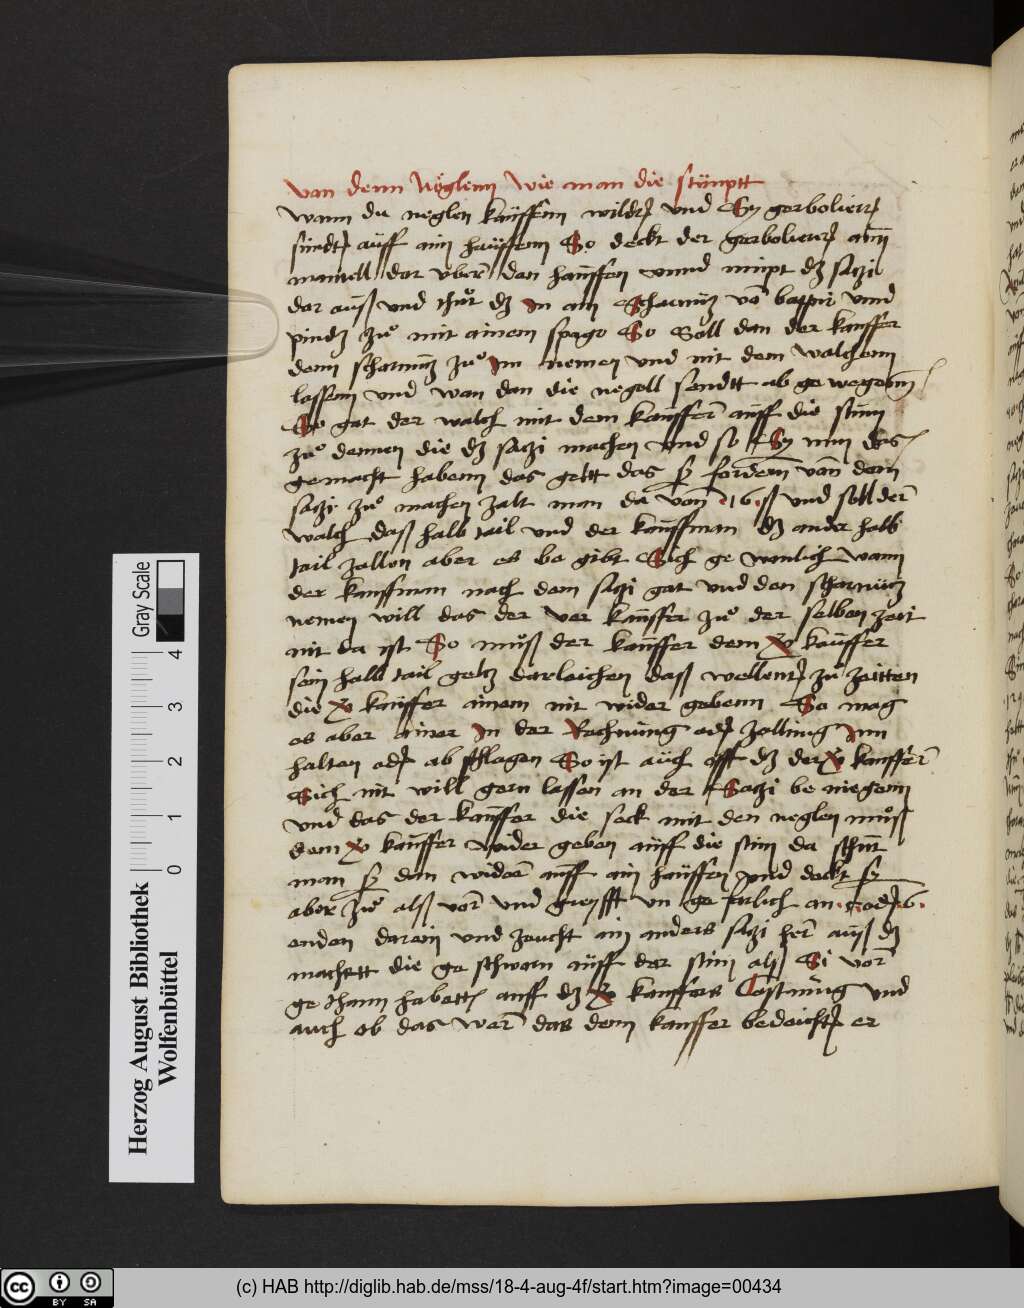 von denn Nëglenn wie man die stünptt
wann du neglen kauffenn wildt und Sy gerboliert
sündt auff ain hauffenn So deckt der gerbolierer ainn
mantell dar über den hauffen unnd nimpt dz sazi
dar auß und thuͦt dz In ain Scharnüz vō bappir unnd
pindz zuͦ mit ainem spago So Soll dan der kauffer
denn scharnüz zuͦ Im nemen und mit dem walchenn
lassenn und wan dan die negell sendtt ab gewegenn
So gat der walch mit dem kauffer auff die stim
zuͦ dennen die dz sazi machen und so Sy nun das
gemacht habenn das geltt das sy fordern von dem
sazi zuͦ machen zalt man da von 16 ß und soll der
walch daß halb tail und der kauffman dz ander halb
tail zallen aber es be gibt Sich ge wonlich wann
der kauffman nach dem sazi gat und den scharnüz
nemen will das der ver kauffer zuͦ der selben zeit
nit da ist So muͦß der kauffer dem kauffer
sein halb tail geltz darleichen daß wellent zuͦ zeitten
die kauffer ainem nit wider gebenn So mag
es aber ainer In der Rechnung od zallung Im
halten od ab schlagen So ist auch offt dz der kauffer
Sich nit will gern lassen an der Sazi be niegenn
und das der kauffer die seck mit den neglen muͦß
dem kauffer wider geben auff die stim da schüt
man sy dan wider auff ain hauffen und deckt sy
aber zuͦ alß vor und greyfft un ge farlich an 5 od 6
enden darein und zeucht ain anders sazi her auß dz
machtt die ge schworn auff der stim alß Si vor
ge thann habett auff dz kauffers Costung und
auch ob das wer das dem kauffer bedeicht er
Gray Scale
0 1 2 3 4
Herzog August Bibliothek
Wolfenbüttel
cc BY SA
(c) HAB http://diglib.hab.de/mss/18-4-aug-4f/start.htm?image=00434